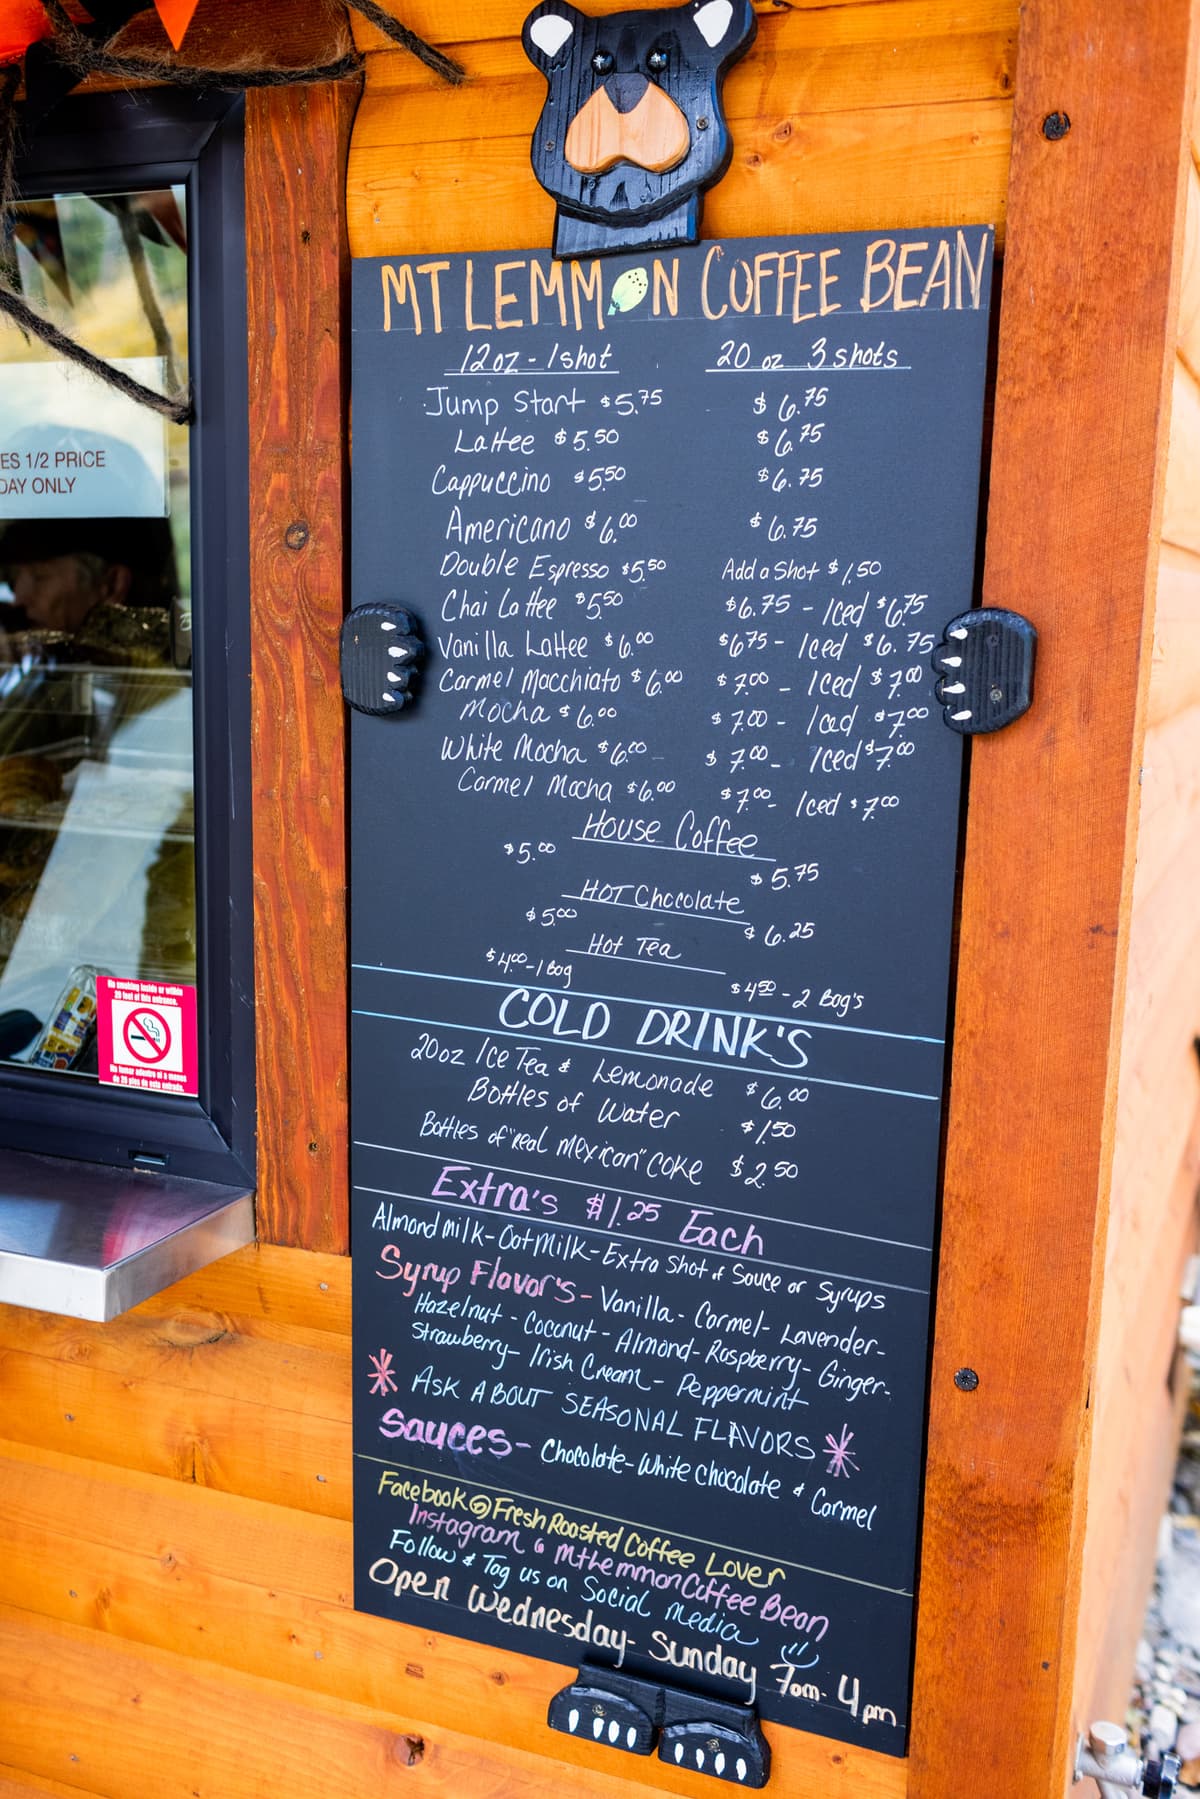 MT LEMMON COFFEE BEAN
12oz - 1shot 20 oz 3 shots
Jump Start $5.75 $6.75
Lattee $5.50 $6.75
Cappuccino $5.50 $6.75
Americano $6.00 $6.75
Double Espresso $5.50 Add a Shot $1.50
Chai Lattee $5.50 $6.75 - Iced $6.75
Vanilla Lattee $6.00 $6.75 - Iced $6.75
Carmel Macchiato $6.00 $7.00 - Iced $7.00
Mocha $6.00 $7.00 - Iced $7.00
White Mocha $6.00 - $7.00 - Iced $7.00
Carmel Mocha $6.00 $7.00 - Iced $7.00
House Coffee
$5.00 $5.75
HOT Chocolate
$5.00 $6.25
Hot Tea
$4.00 - 1 Bag $4.50 - 2 Bag's
COLD DRINK'S
20oz Ice Tea & Lemonade $6.00
Bottles of Water $1.50
Bottles of "real mexican" coke $2.50
Extra's $1.25 Each
Almond milk - Oat Milk - Extra Shot of Sauce or Syrups
Syrup Flavor's - Vanilla - Carmel - Lavender -
Hazelnut - Coconut - Almond - Raspberry - Ginger -
Strawberry - Irish Cream - Peppermint
ASK ABOUT SEASONAL FLAVORS
Sauces - Chocolate - White chocolate & Carmel
Facebook @ Fresh Roasted Coffee Lover
Instagram @ MtlemmonCoffeeBean
Follow & Tag us on Social media
Open Wednesday - Sunday 7am - 4pm
ES 1/2 PRICE
DAY ONLY
No smoking inside or within
20 feet of this entrance.
No fumar adentro ni a menos
de 20 pies de esta entrada.